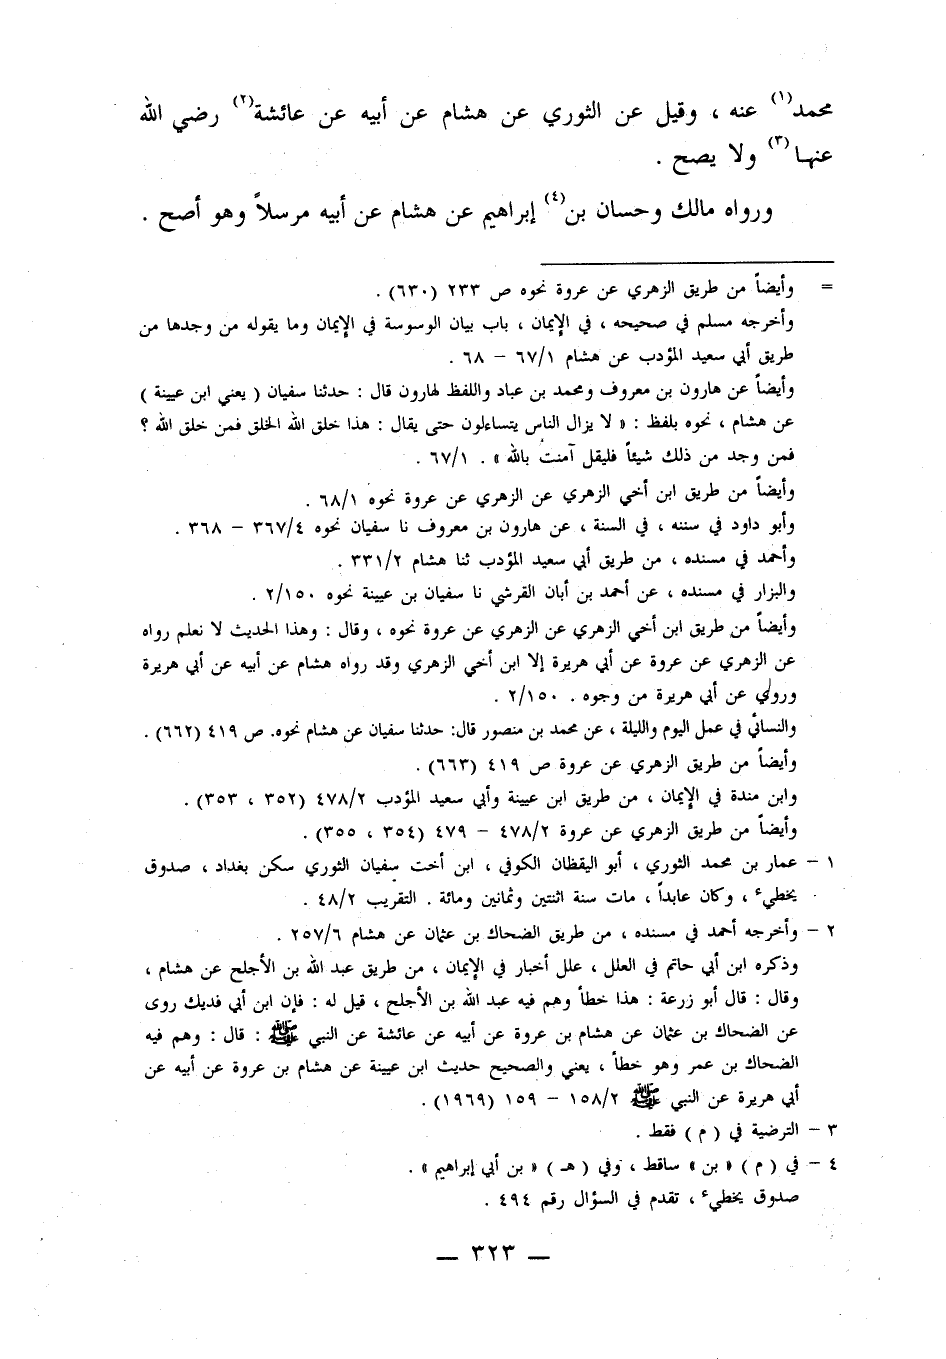 محمد(١) عنه ، وقيل عن الثوري عن هشام عن أبيه عن عائشة(٢) رضي الله
عنها(٣) ولا يصح .
ورواه مالك وحسان بن(٤) إبراهيم عن هشام عن أبيه مرسلاً وهو أصح .
= وأيضاً من طريق الزهري عن عروة نحوه ص ٢٣٣ (٦٣٠) .
وأخرجه مسلم في صحيحه ، في الإيمان ، باب بيان الوسوسة في الإيمان وما يقوله من وجدها من
طريق أبي سعيد المؤدب عن هشام ٦٧/١ – ٦٨ .
وأيضاً عن هارون بن معروف ومحمد بن عباد واللفظ لهارون قال : حدثنا سفيان ( يعني ابن عيينة )
عن هشام ، نحوه بلفظ : « لا يزال الناس يتساءلون حتى يقال : هذا خلق الله الخلق فمن خلق الله ؟
فمن وجد من ذلك شيئاً فليقل آمنت بالله » . ٦٧/١ .
وأيضاً من طريق ابن أخي الزهري عن الزهري عن عروة نحوه ٦٨/١ .
وأبو داود في سننه ، في السنة ، عن هارون بن معروف نا سفيان نحوه ٣٦٧/٤ – ٣٦٨ .
وأحمد في مسنده ، من طريق أبي سعيد المؤدب ثنا هشام ٣٣١/٢ .
والبزار في مسنده ، عن أحمد بن أبان القرشي نا سفيان بن عيينة نحوه ٢/١٥٠ .
وأيضاً من طريق ابن أخي الزهري عن الزهري عن عروة نحوه ، وقال : وهذا الحديث لا نعلم رواه
عن الزهري عن عروة عن أبي هريرة إلا ابن أخي الزهري وقد رواه هشام عن أبيه عن أبي هريرة
وروي عن أبي هريرة من وجوه . ٢/١٥٠ .
والنسائي في عمل اليوم والليلة ، عن محمد بن منصور قال: حدثنا سفيان عن هشام نحوه. ص ٤١٩ (٦٦٢) .
وأيضاً من طريق الزهري عن عروة ص ٤١٩ (٦٦٣) .
وابن مندة في الإيمان ، من طريق ابن عيينة وأبي سعيد المؤدب ٤٧٨/٢ (٣٥٢ ، ٣٥٣) .
وأيضاً من طريق الزهري عن عروة ٤٧٨/٢ – ٤٧٩ (٣٥٤ ، ٣٥٥) .
١ – عمار بن محمد الثوري ، أبو اليقظان الكوفي ، ابن أخت سفيان الثوري سكن بغداد ، صدوق
يخطيء ، وكان عابداً ، مات سنة اثنتين وثمانين ومائة . التقريب ٤٨/٢ .
٢ – وأخرجه أحمد في مسنده ، من طريق الضحاك بن عثمان عن هشام ٢٥٧/٦ .
وذكره ابن أبي حاتم في العلل ، علل أخبار في الإيمان ، من طريق عبد الله بن الأجلح عن هشام ،
وقال : قال أبو زرعة : هذا خطأ وهم فيه عبد الله بن الأجلح ، قيل له : فإن ابن أبي فديك روى
عن الضحاك بن عثمان عن هشام بن عروة عن أبيه عن عائشة عن النبي ﷺ : قال : وهم فيه
الضحاك بن عمر وهو خطأ ، يعني والصحيح حديث ابن عيينة عن هشام بن عروة عن أبيه عن
أبي هريرة عن النبي ﷺ ١٥٨/٢ – ١٥٩ (١٩٦٩) .
٣ – الترضية في ( م ) فقط .
٤ – في ( م ) « بن » ساقط ، وفي ( هـ ) « بن أبي إبراهيم » .
صدوق يخطيء ، تقدم في السؤال رقم ٤٩٤ .
— ٣٢٣ —